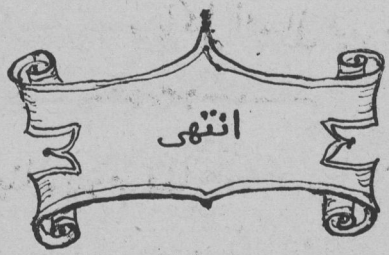 انتهى